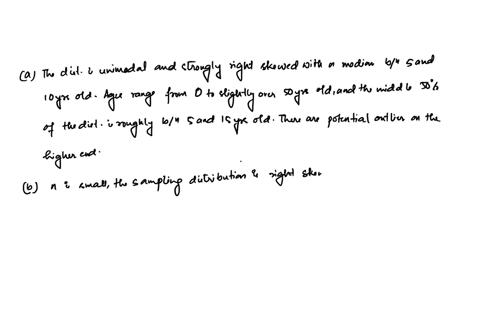 (a) The dist. is unimodal and strongly right skewed with a median b/n 5 and
10 yrs old. Ages range from 0 to slightly over 50 yrs old, and the middle 50%
of the dist. is roughly b/n 5 and 15 yrs old. There are potential outlier on the
higher end.
(b) n is small, the sampling distribution is right skew